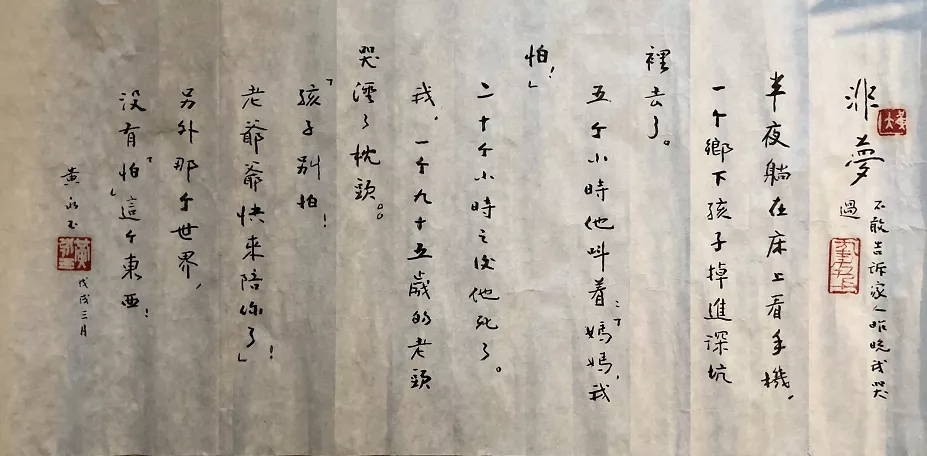 非夢
不敢告訴家人昨晚我哭
過
半夜躺在床上看手機，
一个鄉下孩子掉進深坑
裡去了。
五个小時他叫着：「媽媽，我
怕！」
二十个小時之後他死了。
我，一个九十五歲的老頭
哭溼了枕頭。
「孩子別怕！
老爺爺快來陪你了！」
另外那个世界，
没有「怕」這个東西！
黃永玉
戊戌三月